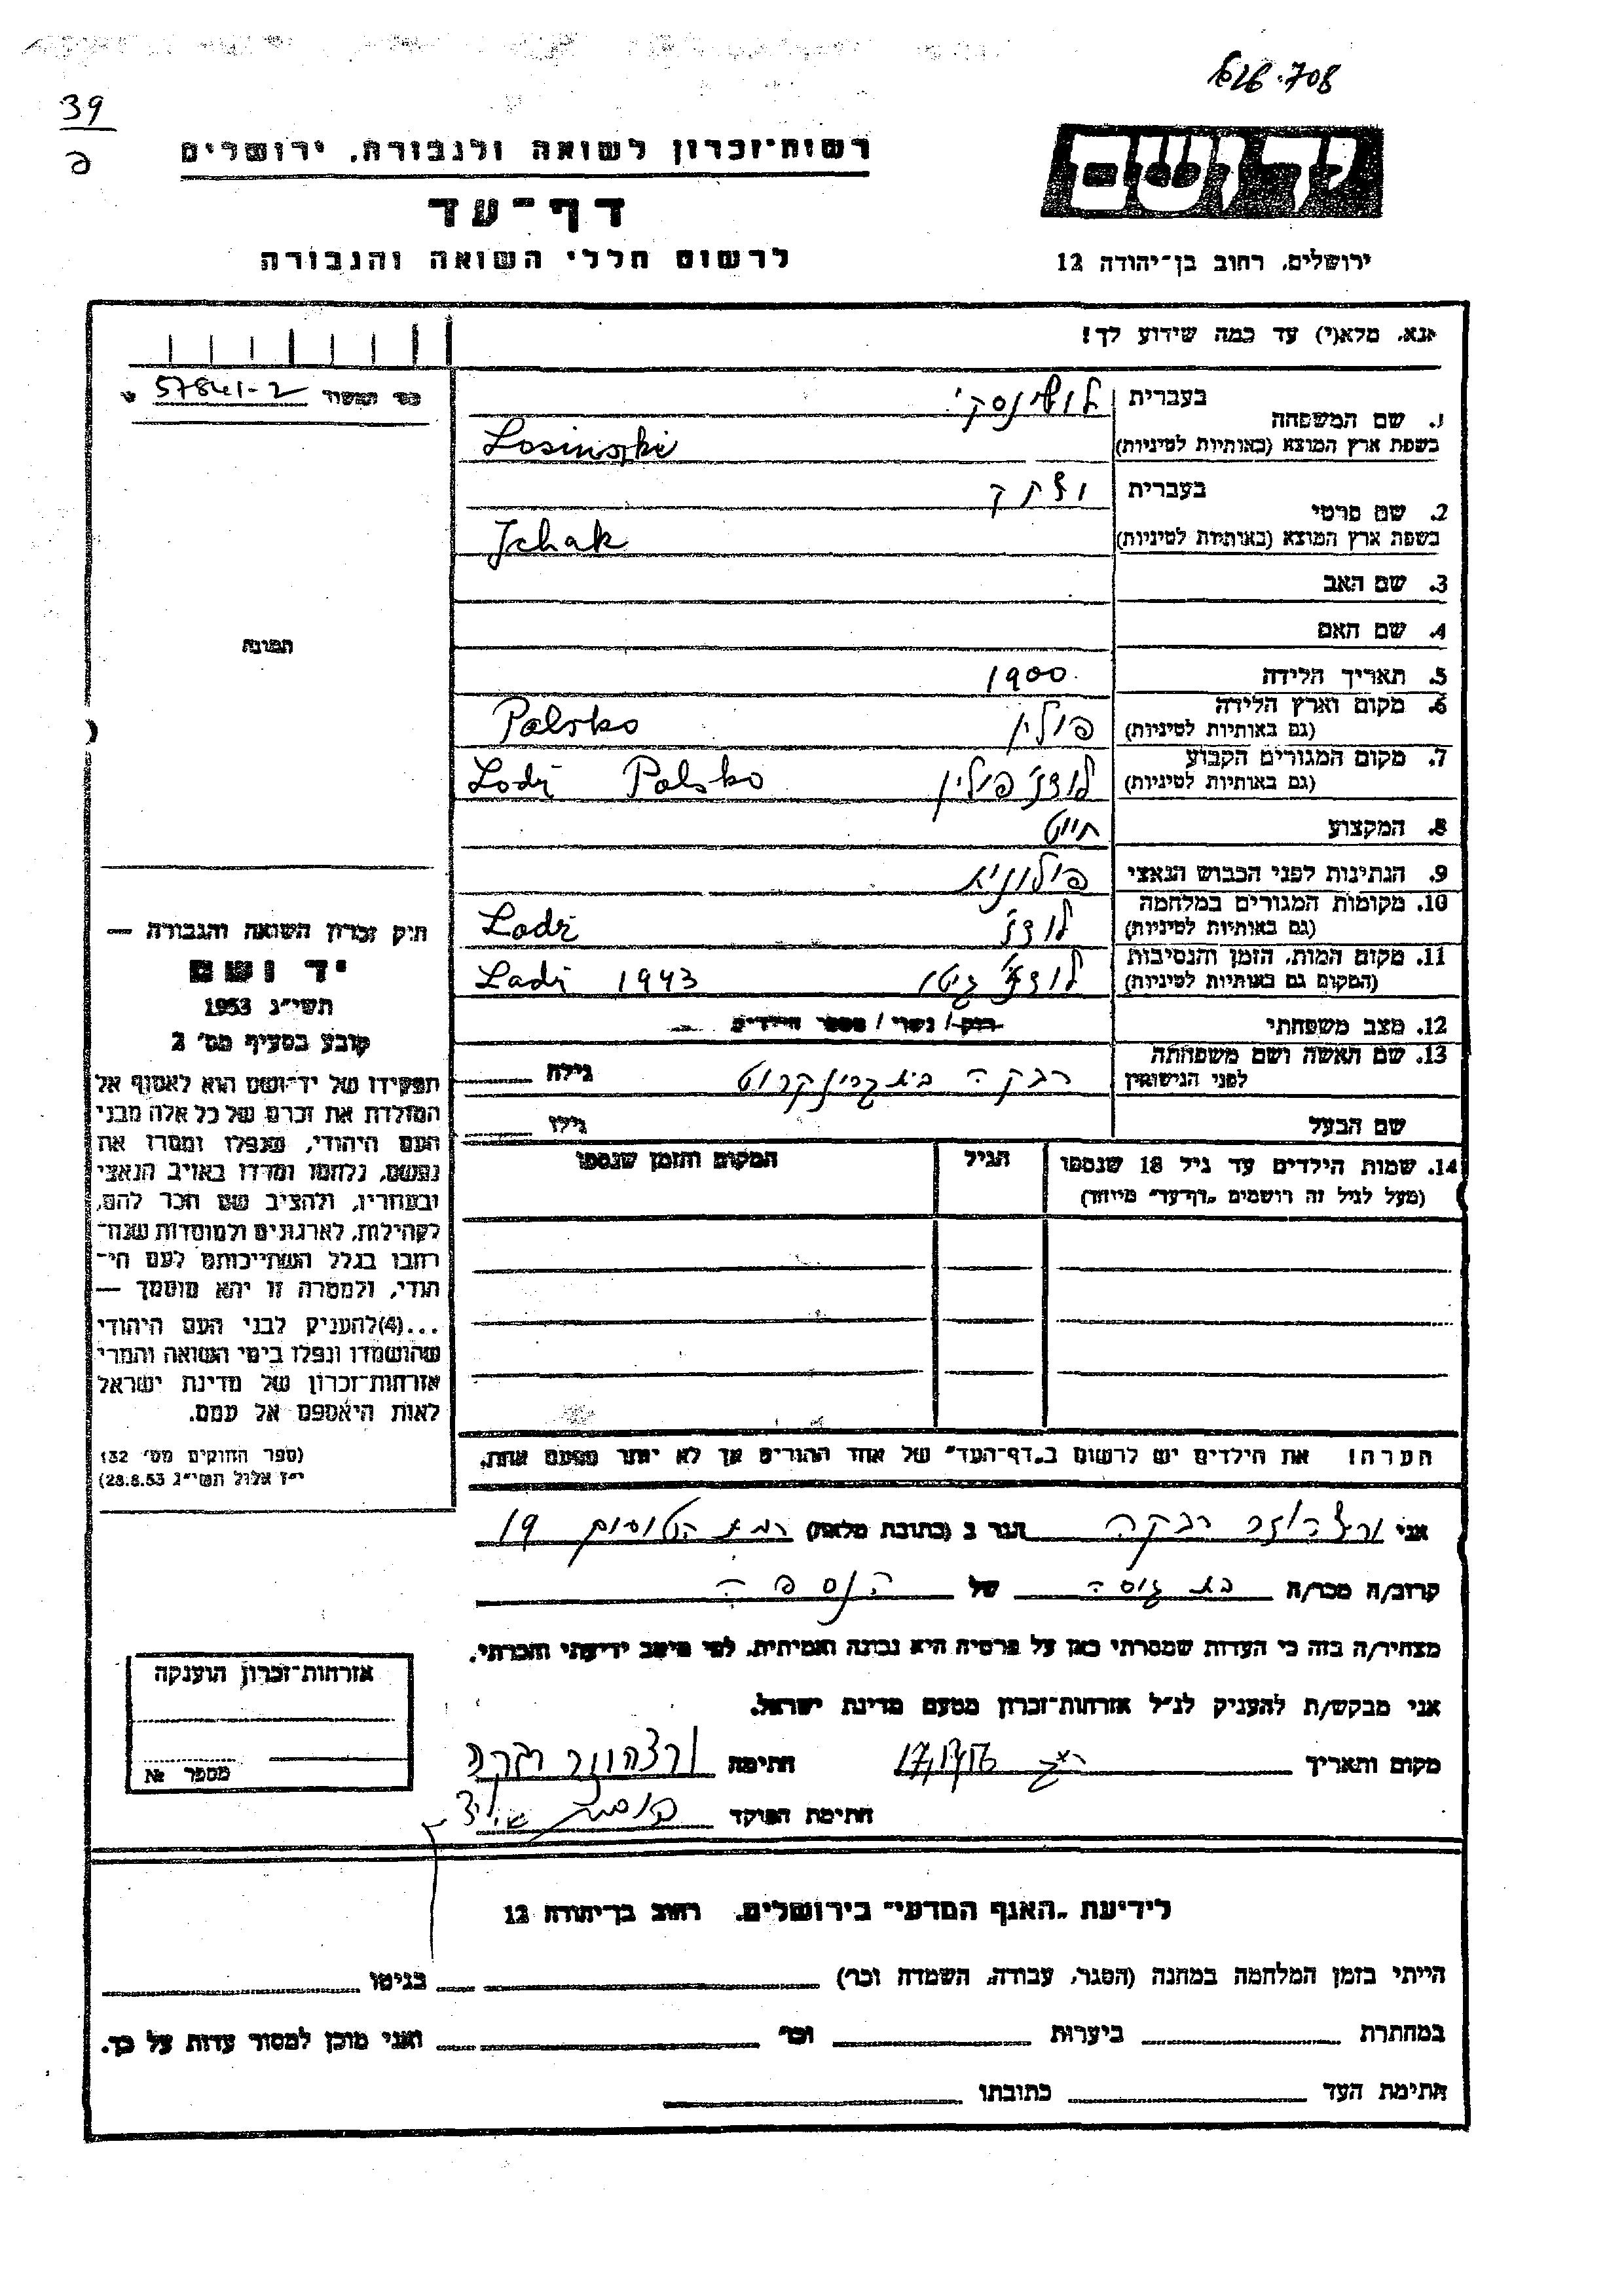 39
רשות־זכרון לשואה ולגבורה, ירושלים
דף־עד
לרשום חללי השואה והגבורה
יד ושם
ירושלים, רחוב בן־יהודה 12
אנא, מלא(י) עד כמה שידוע לך!
57841-2
1. שם המשפחה
בעברית לושינסקי
בשפת ארץ המוצא (באותיות לטיניות) Losinski
2. שם פרטי
בעברית יצחק
בשפת ארץ המוצא (באותיות לטיניות) Jchak
3. שם האב
4. שם האם
5. תאריך הלידה 1900
6. מקום וארץ הלידה
(גם באותיות לטיניות) פולין Polsko
7. מקום המגורים הקבוע
(גם באותיות לטיניות) לודז' פולין Lodz Polsko
8. המקצוע חייט
9. הנתינות לפני הכבוש הנאצי פולונית
10. מקומות המגורים במלחמה
(גם באותיות לטיניות) לודז' Lodz
11. מקום המות, הזמן והנסיבות
(המקום גם באותיות לטיניות) לודז' גיטו 1943 Lodz
12. מצב משפחתי רווק / נשוי / מספר הילדים
13. שם האשה ושם משפחתה
לפני הנישואין רבקה בית גרינקרוט גילה
שם הבעל גילו
14. שמות הילדים עד גיל 18 שנספו הגיל המקום והזמן שנספו
(מעל לגיל זה רושמים "דף־עד" מיוחד)
הערה! את הילדים יש לרשום ב"דף־העד" של אחד ההורים אך לא יותר מפעם אחת.
תמונה
חוק זכרון השואה והגבורה —
יד ושם
תשי"ג 1953
קובע בסעיף מס' 2
תפקידו של יד־ושם הוא לאסוף אל
המולדת את זכרם של כל אלה מבני
העם היהודי, שנפלו ומסרו את
נפשם, נלחמו ומרדו באויב הנאצי
ובעוזריו, ולהציב שם וזכר להם,
לקהילות, לארגונים ולמוסדות שנח־
רבו בגלל השתייכותם לעם הי־
הודי, ולמטרה זו יהא מוסמך —
...(4)להעניק לבני העם היהודי
שהושמדו ונפלו בימי השואה והמרי
אזרחות־זכרון של מדינת ישראל
לאות היאספם אל עמם.
(ספר החוקים מס' 132
י"ז אלול תשי"ג 28.8.53)
אני ורצהויזר רבקה הגר ב (כתובת מלאה) רמת הטייסים 19
קרוב/ה מכר/ה בת גיסה של הנספה
מצהיר/ה בזה כי העדות שמסרתי כאן על פרטיה היא נכונה ואמיתית, לפי מיטב ידיעתי והכרתי.
אני מבקש/ת להעניק לנ"ל אזרחות־זכרון מטעם מדינת ישראל.
מקום ותאריך חתימה ורצהויזר רבקה
חתימת הפוקד
אזרחות־זכרון הוענקה
מספר №
לידיעת "האגף המדעי" בירושלים, רחוב בן־יהודה 12
הייתי בזמן המלחמה במחנה (הסגר, עבודה, השמדה וכו') בגיטו
במחתרת ביערות וכו' ואני מוכן למסור עדות על כך.
חתימת העד כתובתו